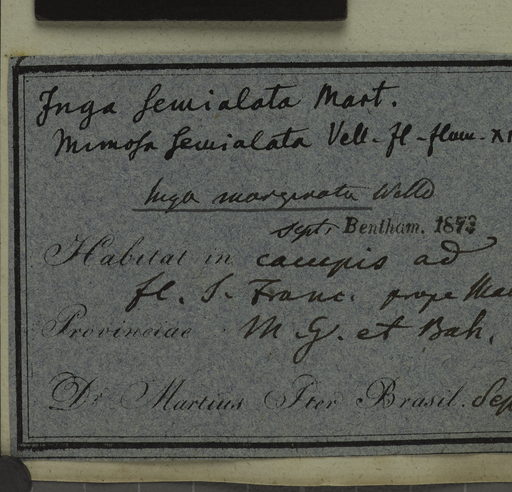 Inga semialata Mart.
Mimosa semialata Vell. fl. flum. XI
Inga marginata Willd
Sept. Bentham. 1873
Habitat in campis ad
fl. S. Franc. prope
Provinciae M. G. et Bah.
Dr Martius Iter Brasil. Sep